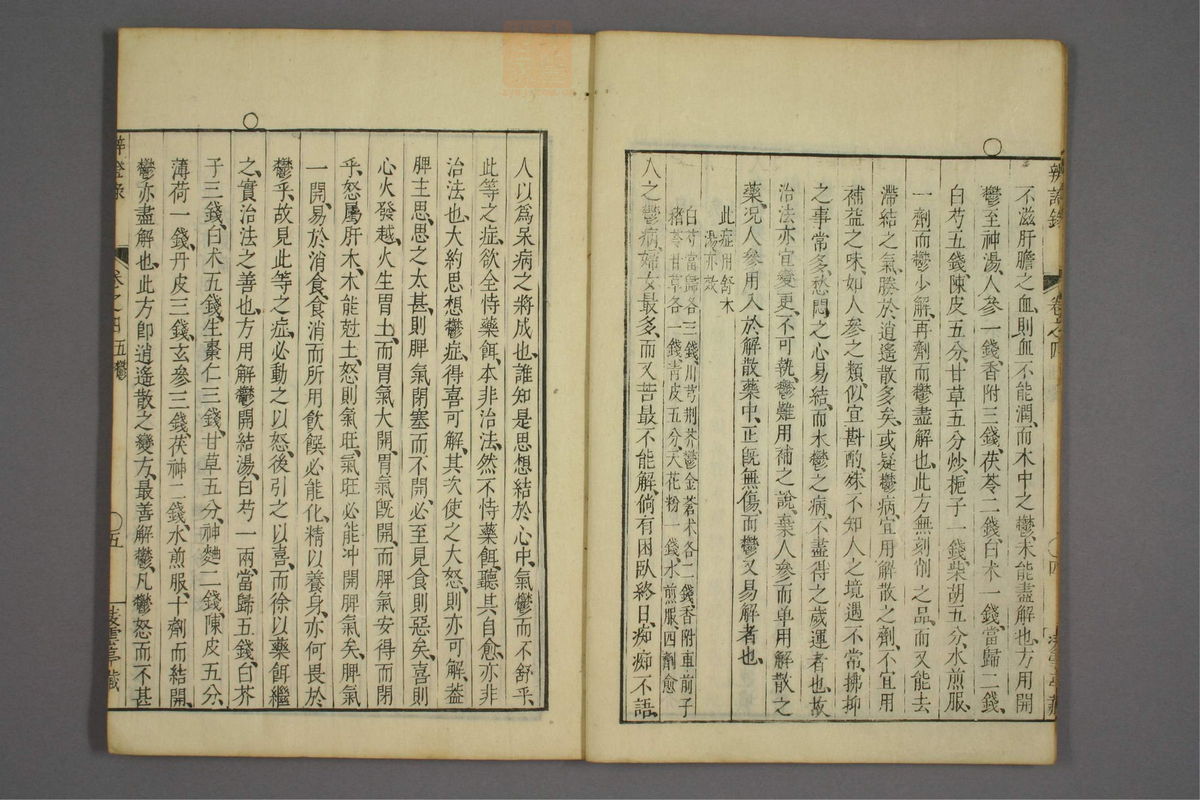 不滋肝膽之血、則血不能潤、而木中之鬱、未能盡解也、方用開
鬱至神湯、人參一錢、香附三錢、茯苓二錢、白术一錢、當歸二錢、
白芍五錢、陳皮五分、甘草五分、炒梔子一錢、柴胡五分、水煎服、
一劑而鬱少解、再劑而鬱盡解也、此方無刻削之品、而又能去
滯結之氣、勝於逍遙散多矣、或疑鬱病、宜用解散之劑、不宜用
補益之味、如人參之類、似宜斟酌、殊不知人之境遇不常、拂抑
之事常多、愁悶之心易結、而木鬱之病、不盡得之歲運者也、故
治法亦宜變更、不可執鬱難用補之說、棄人參而单用解散之
藥、况人參用入於解散藥中、正旣無傷、而鬱又易解者也、
此症用舒木
湯亦效
白芍當歸各三錢、川芎荆芥鬱金蒼术各二錢、香附車前子
猪苓甘草各一錢、青皮五分、天花粉一錢、水煎服、四劑愈
人之鬱病、婦女最多、而又苦最不能解、倘有困臥終日、痴痴不語、
辨證錄
卷之四
四
人以爲呆病之將成也、誰知是思想結於心中、氣鬱而不舒乎、
此等之症、欲全恃藥餌、本非治法、然不恃藥餌、聽其自愈、亦非
治法也、大約思想鬱症、得喜可解、其次使之大怒、則亦可解、葢
脾主思、思之太甚、則脾氣閉塞而不開、必至見食則惡矣、喜則
心火發越、火生胃土、而胃氣大開、胃氣旣開、而脾氣安得而閉
乎、怒屬肝木、木能尅土、怒則氣旺、氣旺必能冲開脾氣矣、脾氣
一開、易於消食、食消而所用飲饌必能化精以養身、亦何畏於
鬱乎、故見此等之症、必動之以怒、後引之以喜、而徐以藥餌繼
之、實治法之善也、方用解鬱開結湯、白芍一兩、當歸五錢、白芥
子三錢、白术五錢、生棗仁三錢、甘草五分、神麯二錢、陳皮五分、
薄荷一錢、丹皮三錢、玄參三錢、茯神二錢、水煎服、十劑而結開、
鬱亦盡解也、此方卽逍遙散之變方、最善解鬱、凡鬱怒而不甚
辨證錄
卷之四 五鬱
五